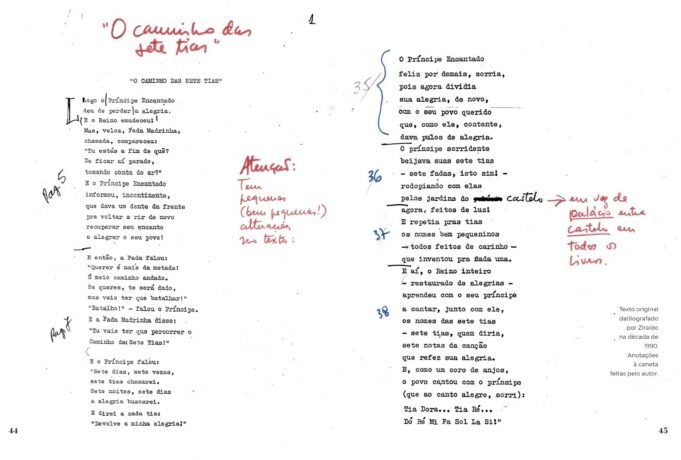 "O caminho das
sete tias"
1
"O CAMINHO DAS SETE TIAS"
Logo o Príncipe Encantado
deu de perder a alegria.
E o Reino emudeceu!
Mas, veloz, Fada Madrinha,
chamada, compareceu:
"Tu estás a fim de quê?
De ficar aí parado,
tomando conta do ar?"
Pag 5
E o Príncipe Encantado
informou, incontinente,
que dava um dente da frente
pra voltar a rir de novo
recuperar seu encanto
e alegrar o seu povo!
E então, a Fada falou:
"Querer é mais da metade!
É meio caminho andado.
Se queres, te será dado,
mas vais ter que batalhar!"
"Batalho!" - falou o Príncipe.
Pag 7
E a Fada Madrinha disse:
"Tu vais ter que percorrer o
Caminho das Sete Tias!"
E o Príncipe falou:
"Sete dias, sete vezes,
sete tias chamarei.
Sete noites, sete dias
a alegria buscarei.
E direi a cada tia:
"Devolve a minha alegria!"
Atenção:
Tem
pequenas
(bem pequenas!)
alterações
no texto:
44
35
O Príncipe Encantado
feliz por demais, sorria,
pois agora dividia
sua alegria, de novo,
com o seu povo querido
que, como ele, contente,
dava pulos de alegria.
O príncipe sorridente
beijava suas sete tias
36
- sete fadas, isto sim! -
rodopiando com elas
pelos jardins do castelo
agora, feitos de luz!
E repetia pras tias
37
os nomes bem pequeninos
- todos feitos de carinho -
que inventou pra cada uma.
E aí, o Reino inteiro
- restaurado de alegrias -
aprendeu com o seu príncipe
38
a cantar, junto com ele,
os nomes das sete tias
- sete tias, quem diria,
sete notas da canção
que refez sua alegria.
E, como um coro de anjos,
o povo cantou com o príncipe
(que ao canto alegre, sorri):
Tia Dora... Tia Ré...
Dó Ré Mi Fa Sol La Si!"
em vez de
palácio entra
castelo em
todos os
livros.
Texto original
datilografado
por Ziraldo
na década de
1990.
Anotações
à caneta
feitas pelo autor.
45